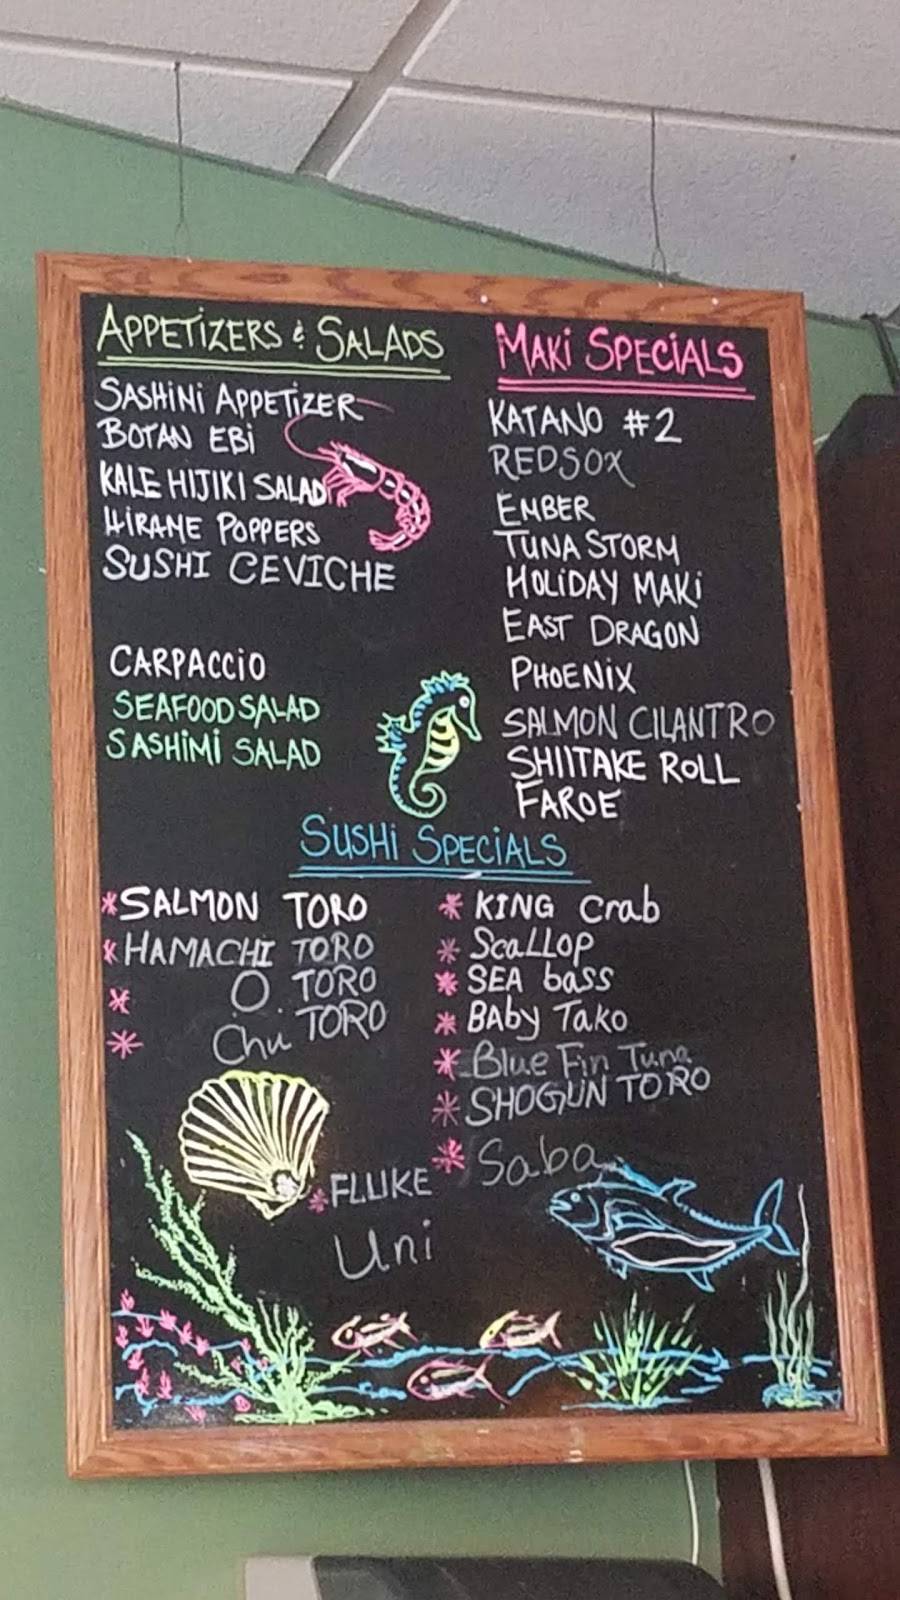 APPETIZERS & SALADS
SASHINI APPETIZER
BOTAN EBI
KALE HIJIKI SALAD
HIRAME POPPERS
SUSHI CEVICHE
CARPACCIO
SEAFOOD SALAD
SASHIMI SALAD
MAKI SPECIALS
KATANO #2
REDSOX
EMBER
TUNA STORM
HOLIDAY MAKI
EAST DRAGON
PHOENIX
SALMON CILANTRO
SHIITAKE ROLL
FAROE
SUSHI SPECIALS
*SALMON TORO
*HAMACHI TORO
* O TORO
* Chu TORO
*FLUKE
Uni
* KING crab
* Scallop
* SEA bass
* BAby Tako
* Blue Fin Tuna
* SHOGUN TORO
* Saba